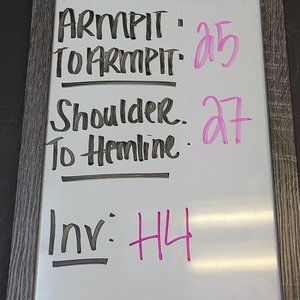 ARMPIT.
TO ARMPIT: 25
Shoulder.
To Hemline: 27
Inv: H4